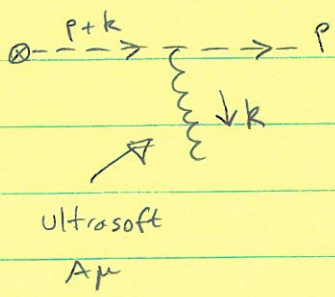 p+k
p
k
ultrasoft
Aμ